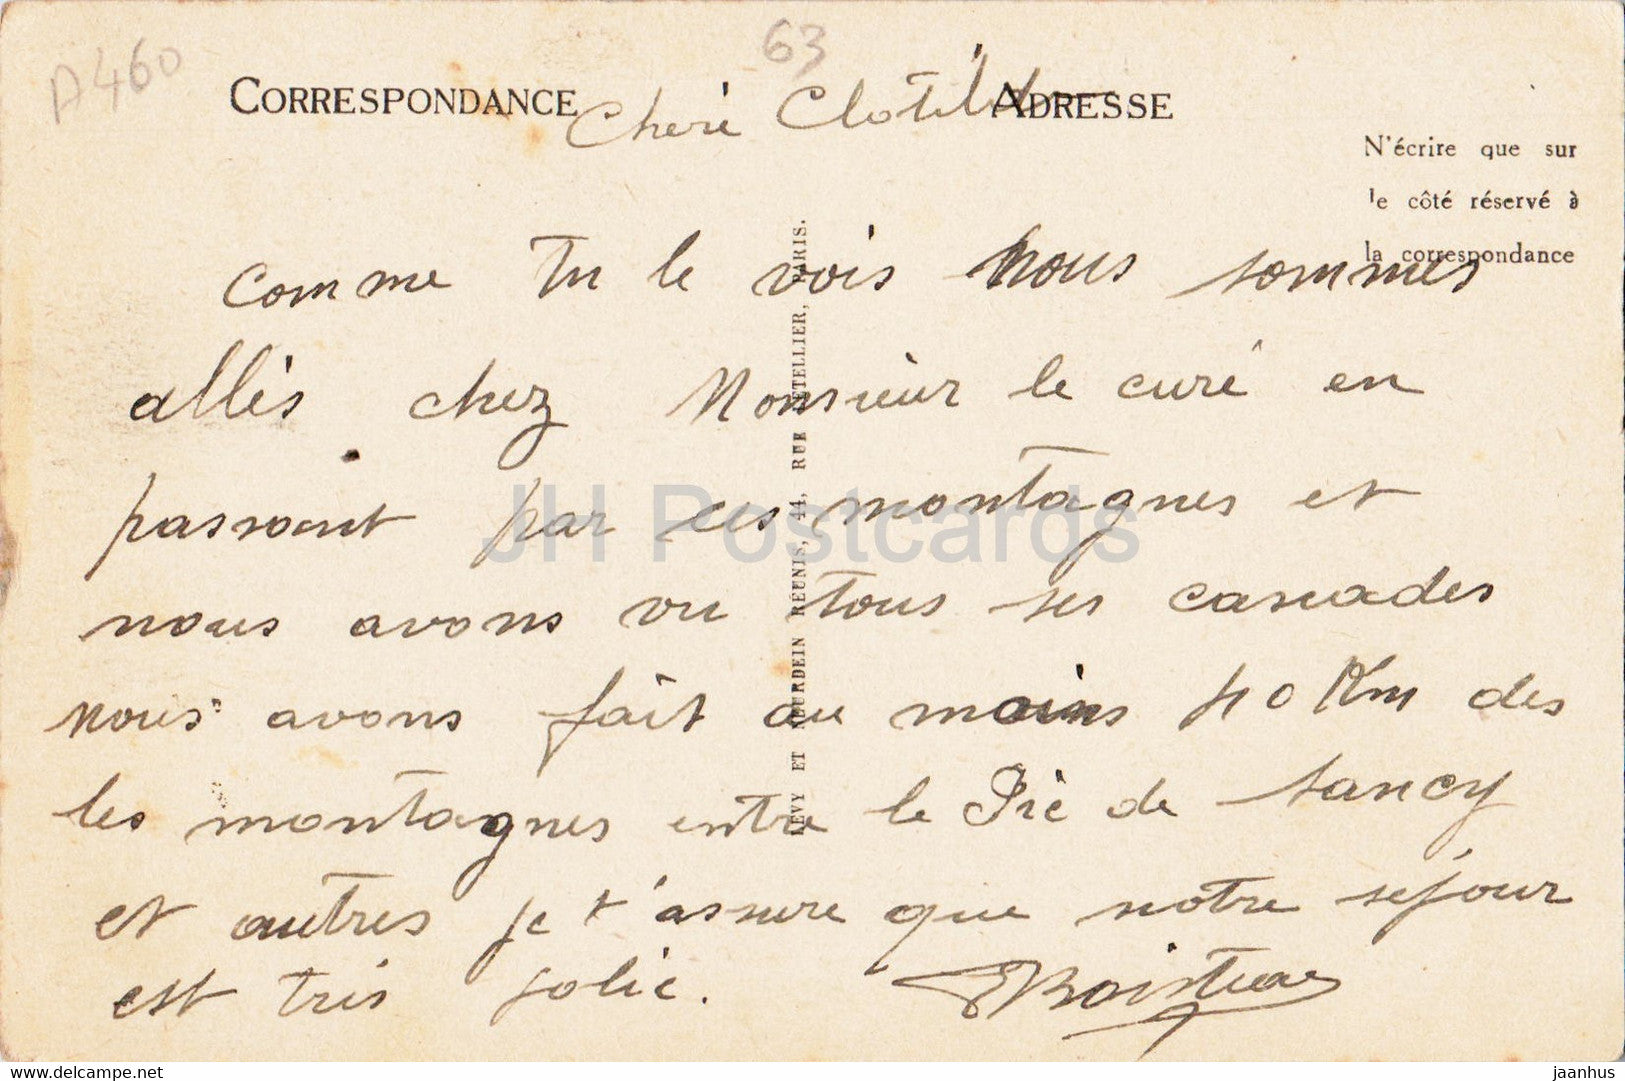 A460
63
CORRESPONDANCE
ADRESSE
Cheré Clotilde
N'écrire que sur
le côté réservé à
la correspondance
comme tu le vois nous sommes
allès chez Monsieur le curé en
passant par ces montagnes et
nous avons vu tous ses cascades
nous avons fait au moins 40 Km des
les montagnes entre le Pic de Sancy
et autres je t'assure que notre sejour
est très jolie.
LEVY ET NEURDEIN REUNIS, 44, RUE LETELLIER, PARIS.
JH Postcards
www.delcampe.net
jaanhus